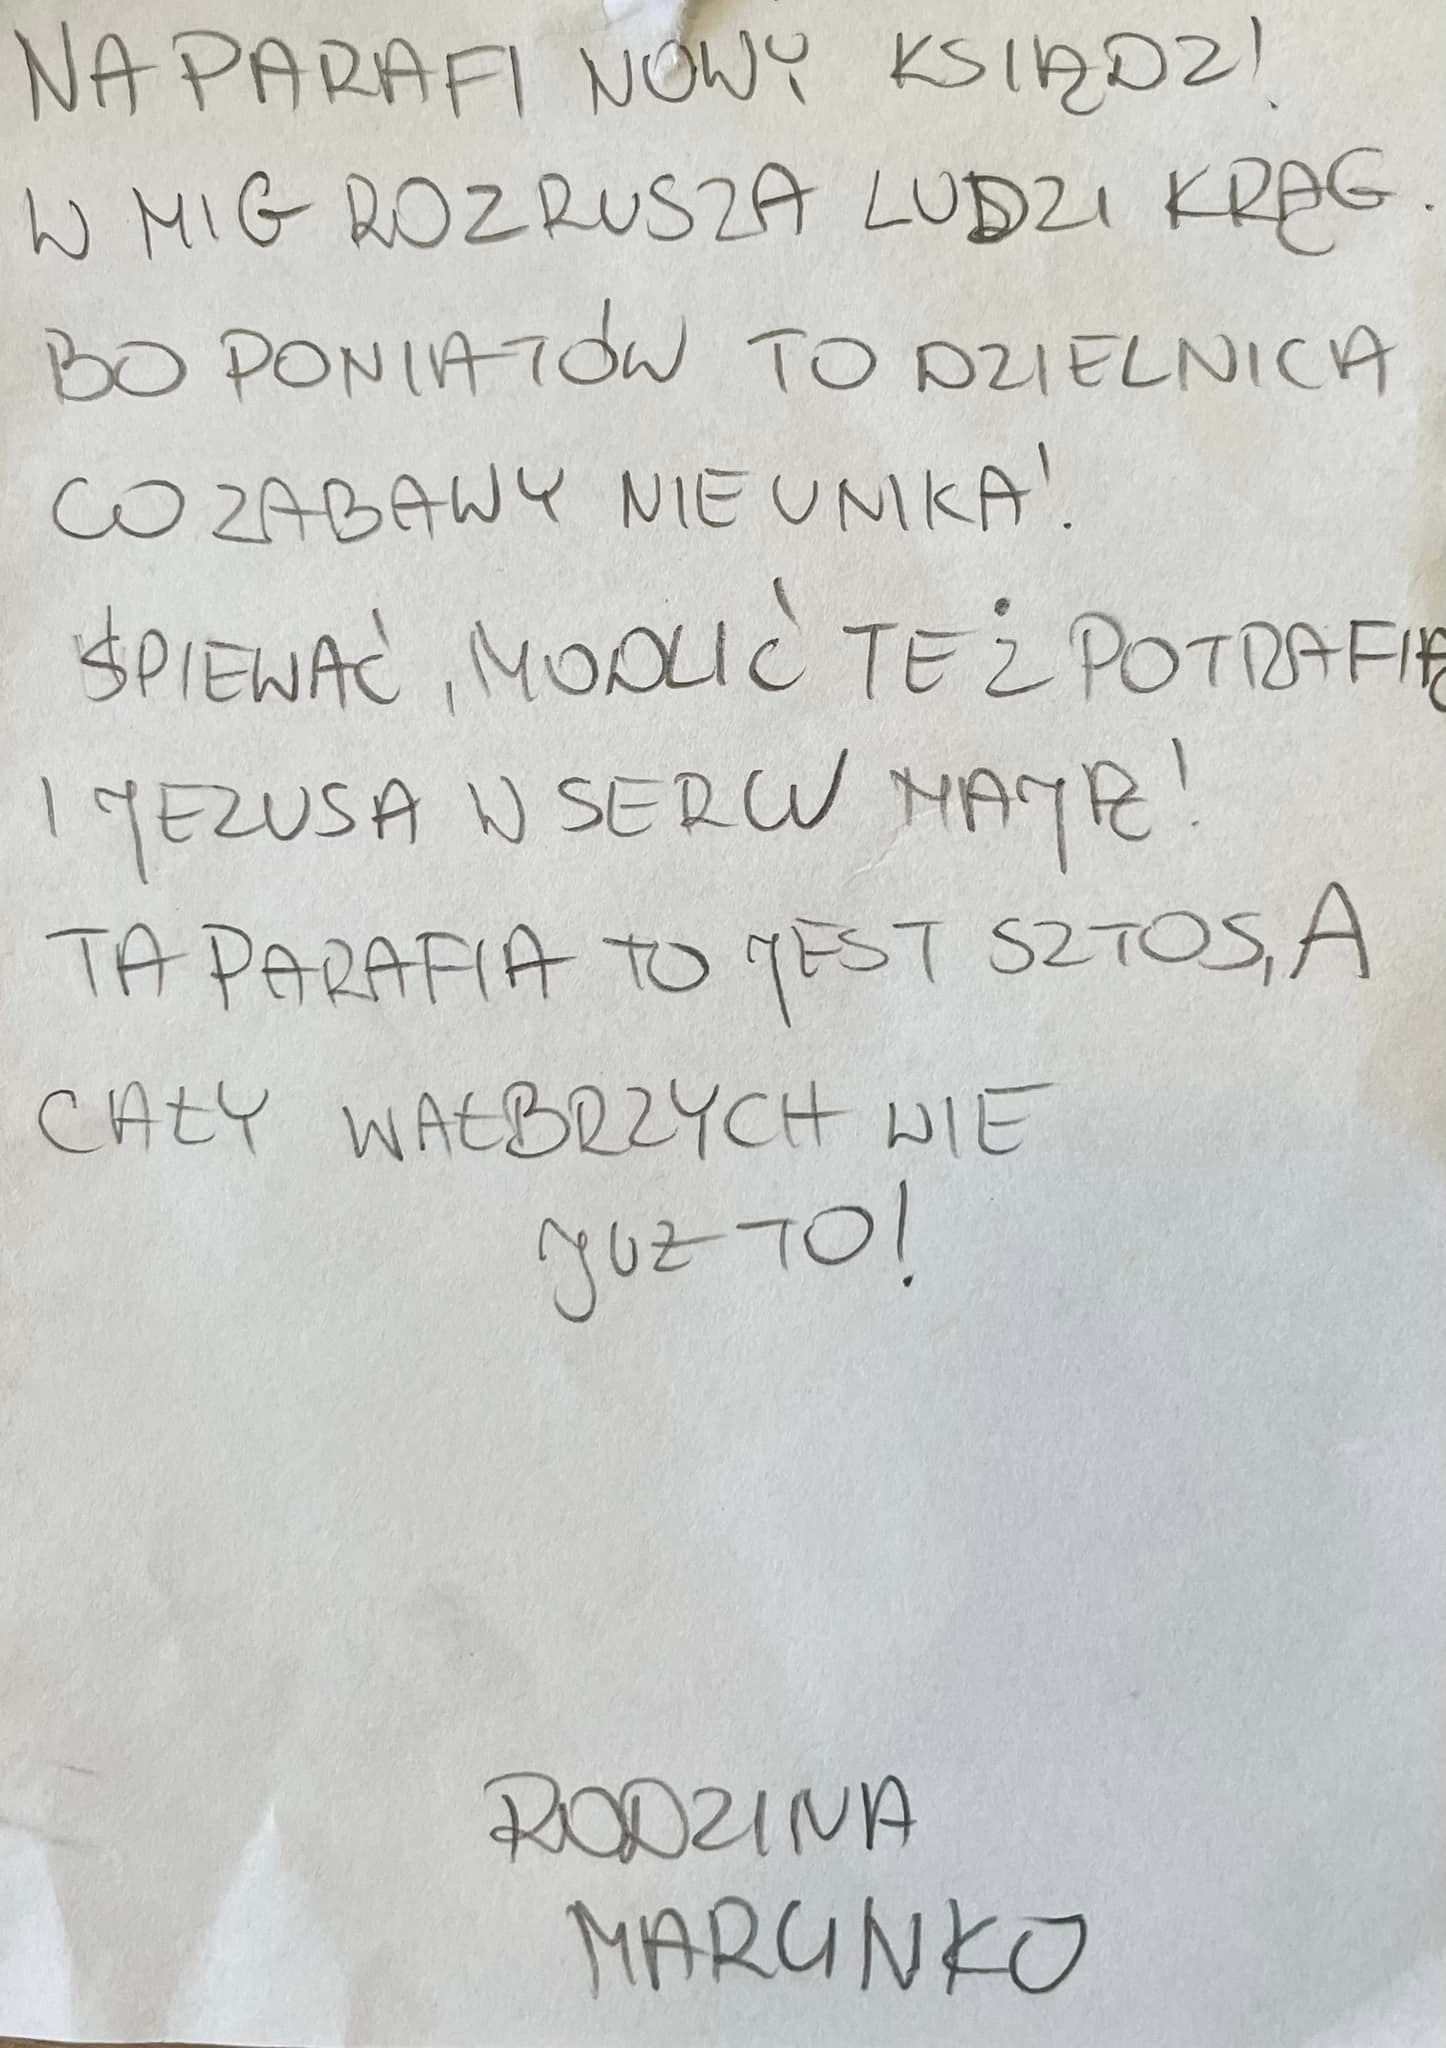 NA PARAFI NOWY KSIĄDZ!
W MIG ROZRUSZA LUDZI KRĄG.
BO PONIATÓW TO DZIELNICA
CO ZABAWY NIE UNIKA!
ŚPIEWAĆ, MODLIĆ TEŻ POTRAFIĄ
I JEZUSA W SERCU MAJĄ!
TA PARAFIA TO JEST SZTOS, A
CAŁY WAŁBRZYCH WIE
JUŻ TO!
RODZINA
MARCINKO